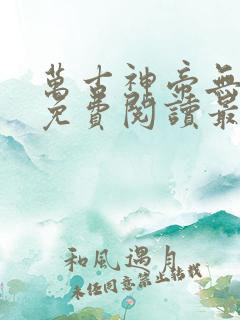 萬古神帝無
免費閱讀最
和風遇月
未經同意禁止轉載